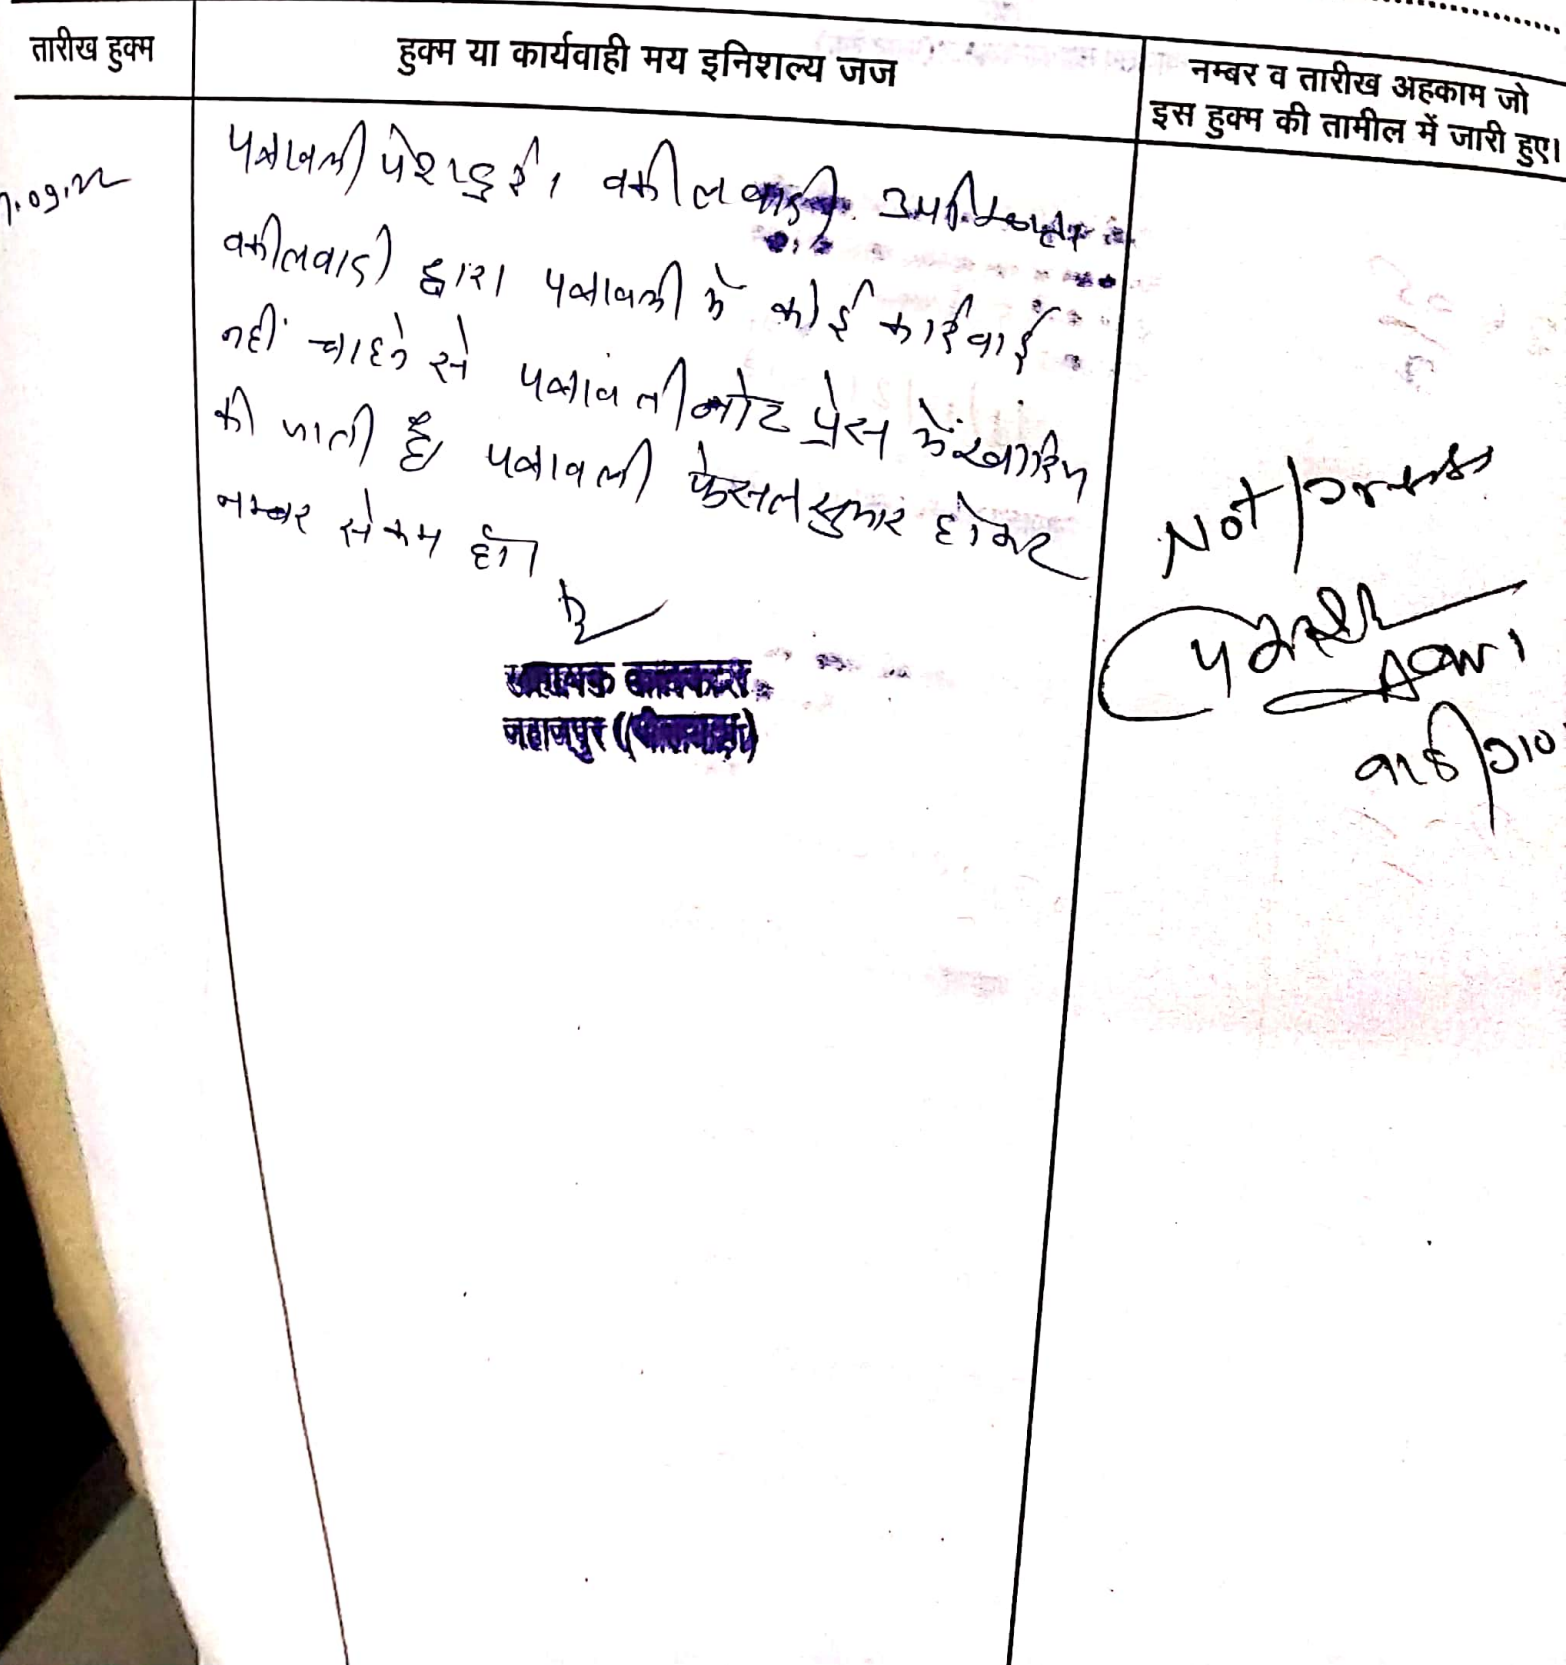 तारीख हुक्म
हुक्म या कार्यवाही मय इनिशल्य जज
नम्बर व तारीख अहकाम जो
इस हुक्म की तामील में जारी हुए।
.09.22
पत्रावली पेश हुई। वकील वादी उपस्थित
वकील वादी द्वारा पत्रावली में कोई कार्रवाई
नहीं चाहने से पत्रावली नोट प्रेस में खारिज
की जाती है। पत्रावली फेसल सुमार होकर
नम्बर से कम हो।
जहाजपुर (भीलवाड़ा)
Not press